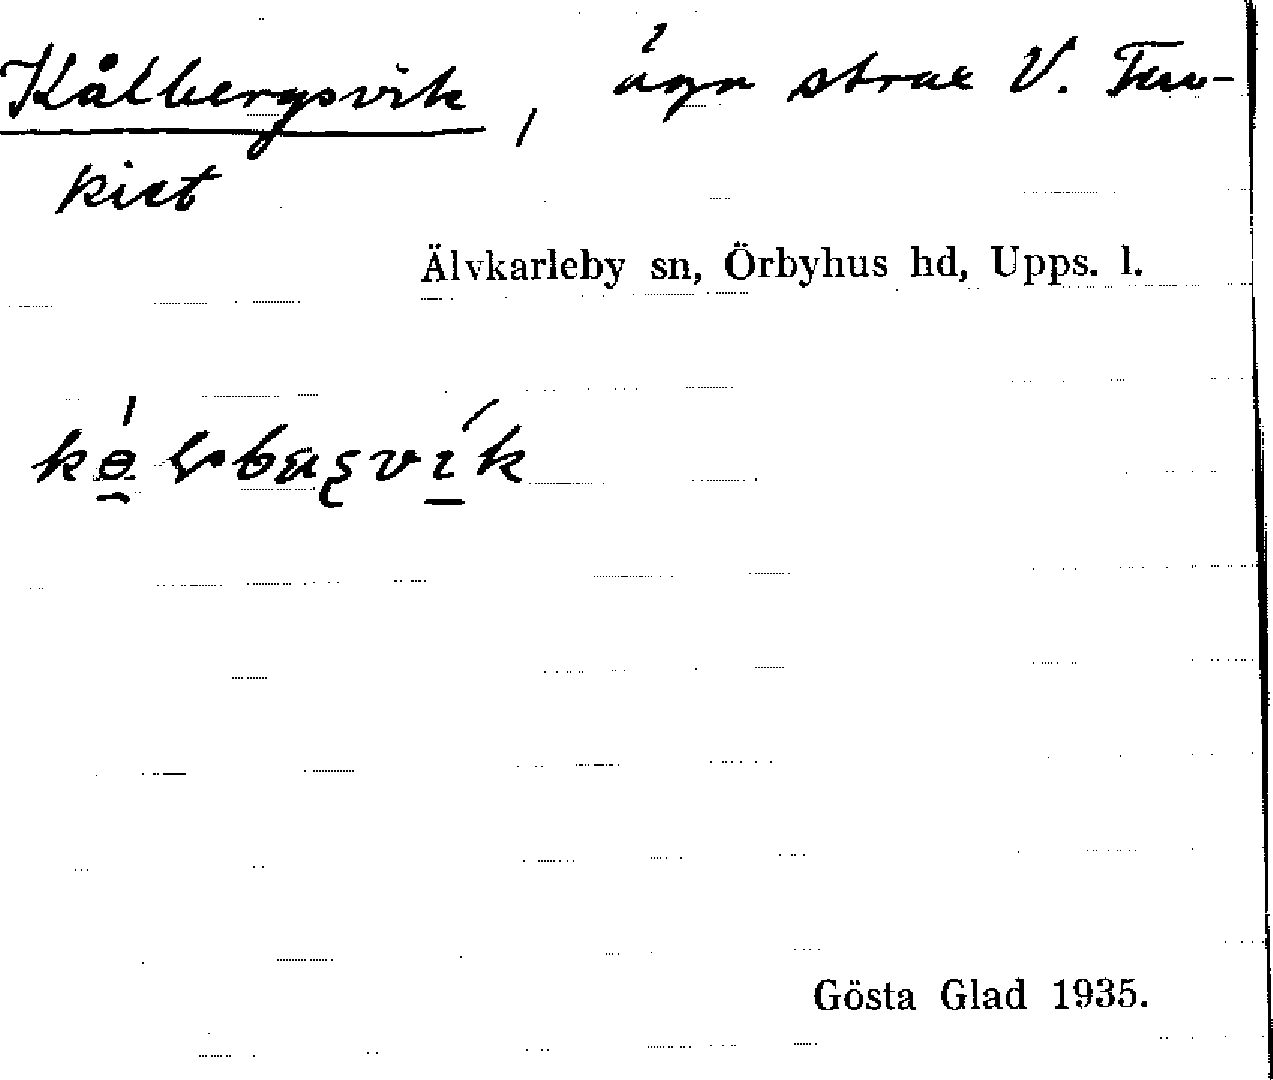 Kålbergsvik, ägn strax V. Tun-
kist
Älvkarleby sn, Örbyhus hd, Upps. l.
Gösta Glad 1935.